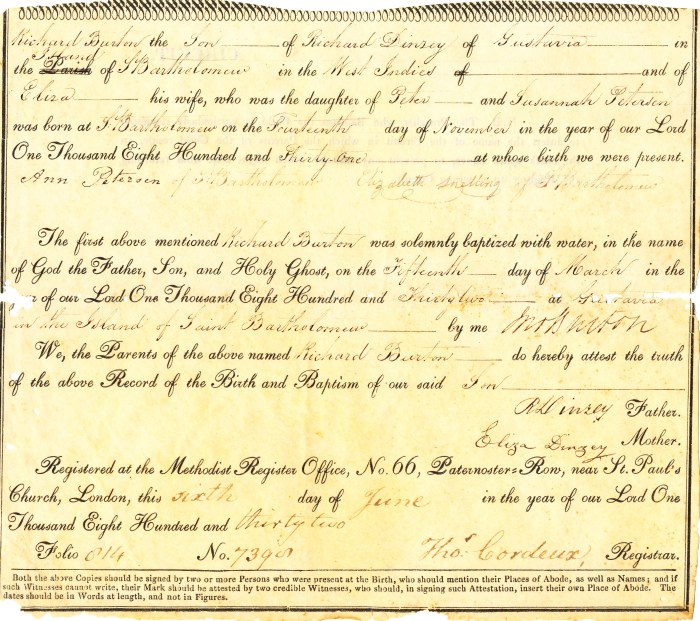 Richard Burton the Son of Richard Dinzey of Gustavia in
Island
the Parish of St Bartholomew in the West Indies of and of
Eliza his wife, who was the daughter of Peter and Susannah Petersen
was born at St Bartholomew on the Fourteenth day of November in the year of our Lord
One Thousand Eight Hundred and Thirty-One at whose birth we were present.
Ann Petersen of St Bartholomew Elizabeth Snelling of St Bartholomew
The first above mentioned Richard Burton was solemnly baptized with water, in the name
of God the Father, Son, and Holy Ghost, on the Fifteenth day of March in the
of our Lord One Thousand Eight Hundred and Thirty two at Gustavia
in the Island of Saint Bartholomew by me
We, the Parents of the above named Richard Burton do hereby attest the truth
of the above Record of the Birth and Baptism of our said Son
R Dinzey Father.
Eliza Dinzey Mother.
Registered at the Methodist Register Office, No. 66, Paternoster-Row, near St. Paul's
Church, London, this sixth day of June in the year of our Lord One
Thousand Eight Hundred and thirty two
Folio 814 No. 7398 Thos. Cordeux, Registrar.
Both the above Copies should be signed by two or more Persons who were present at the Birth, who should mention their Places of Abode, as well as Names; and if
such Witnesses cannot write, their Mark should be attested by two credible Witnesses, who should, in signing such Attestation, insert their own Place of Abode. The
dates should be in Words at length, and not in Figures.